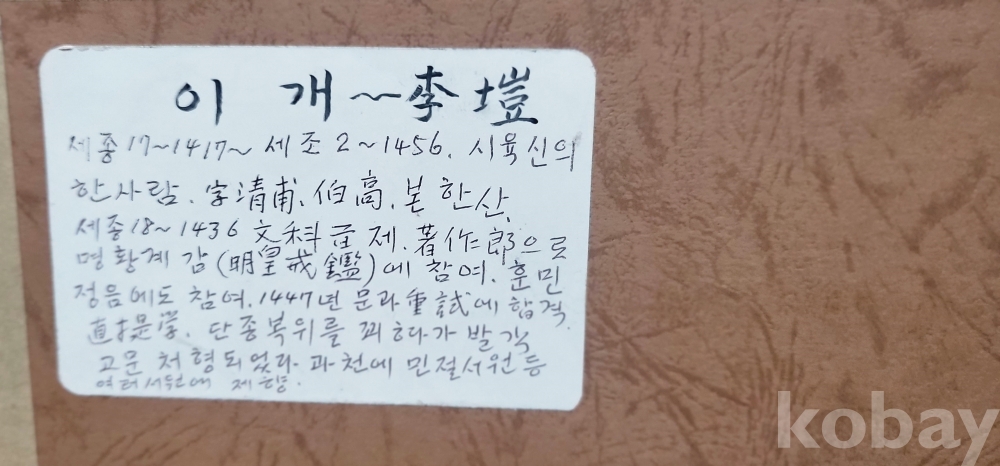 이 개~李塏
세종17~1417~ 세조2~1456. 시육신의
한사람. 字淸甫. 伯高. 본 한산.
세종18~1436 文科급제. 著作郎으로
명황계감(明皇戒鑑)에 참여. 훈민
정음에도 참여. 1447년 문과重試에 합격.
直提学. 단종복위를 꾀하다가 발각
고문 처형되었다. 과천에 민절서원 등
여러서원에 제향.
kobay